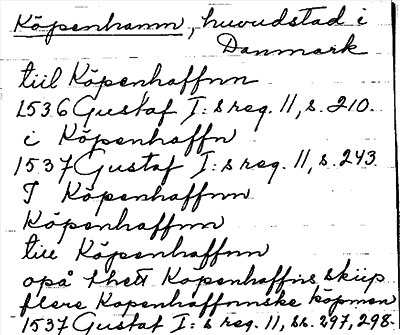 Köpenhamn, huvudstad i
Danmark
tiil Köpenhaffnn
1536 Gustaf I:s reg. 11, s. 210.
i Köpenhaffn
1537 Gustaf I:s reg. 11, s. 243
I Köpenhaffnn
Köpenhaffnn
till Köpenhaffnn
opå thett Köpenhaffns skiip
flere Kopenhaffnnske köpmen
1537 Gustaf I:s reg 11, ss. 297, 298.